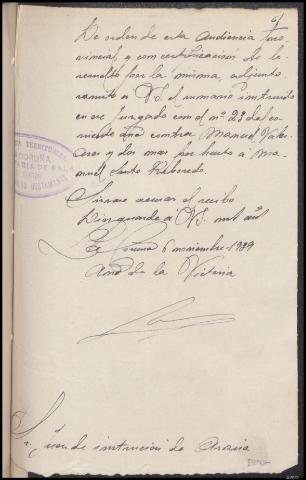 De orden de esta Audiencia pro-
vincial, y con certificacion de lo
resuelto por la misma, adjunto
remito a VS. el sumario instruido
en ese Juzgado con el nº 28 del co-
rriente año contra Manuel Vale-
y dos mas por hurto a Ma-
nuel Reboredo.
Sirvase acusar el recibo
Dios guarde a VS. mchos años
La Coruña 6 noviembre 1939
Año de la Victoria
TERRITORIAL
CORUÑA
Sr. Juez de instrucion de